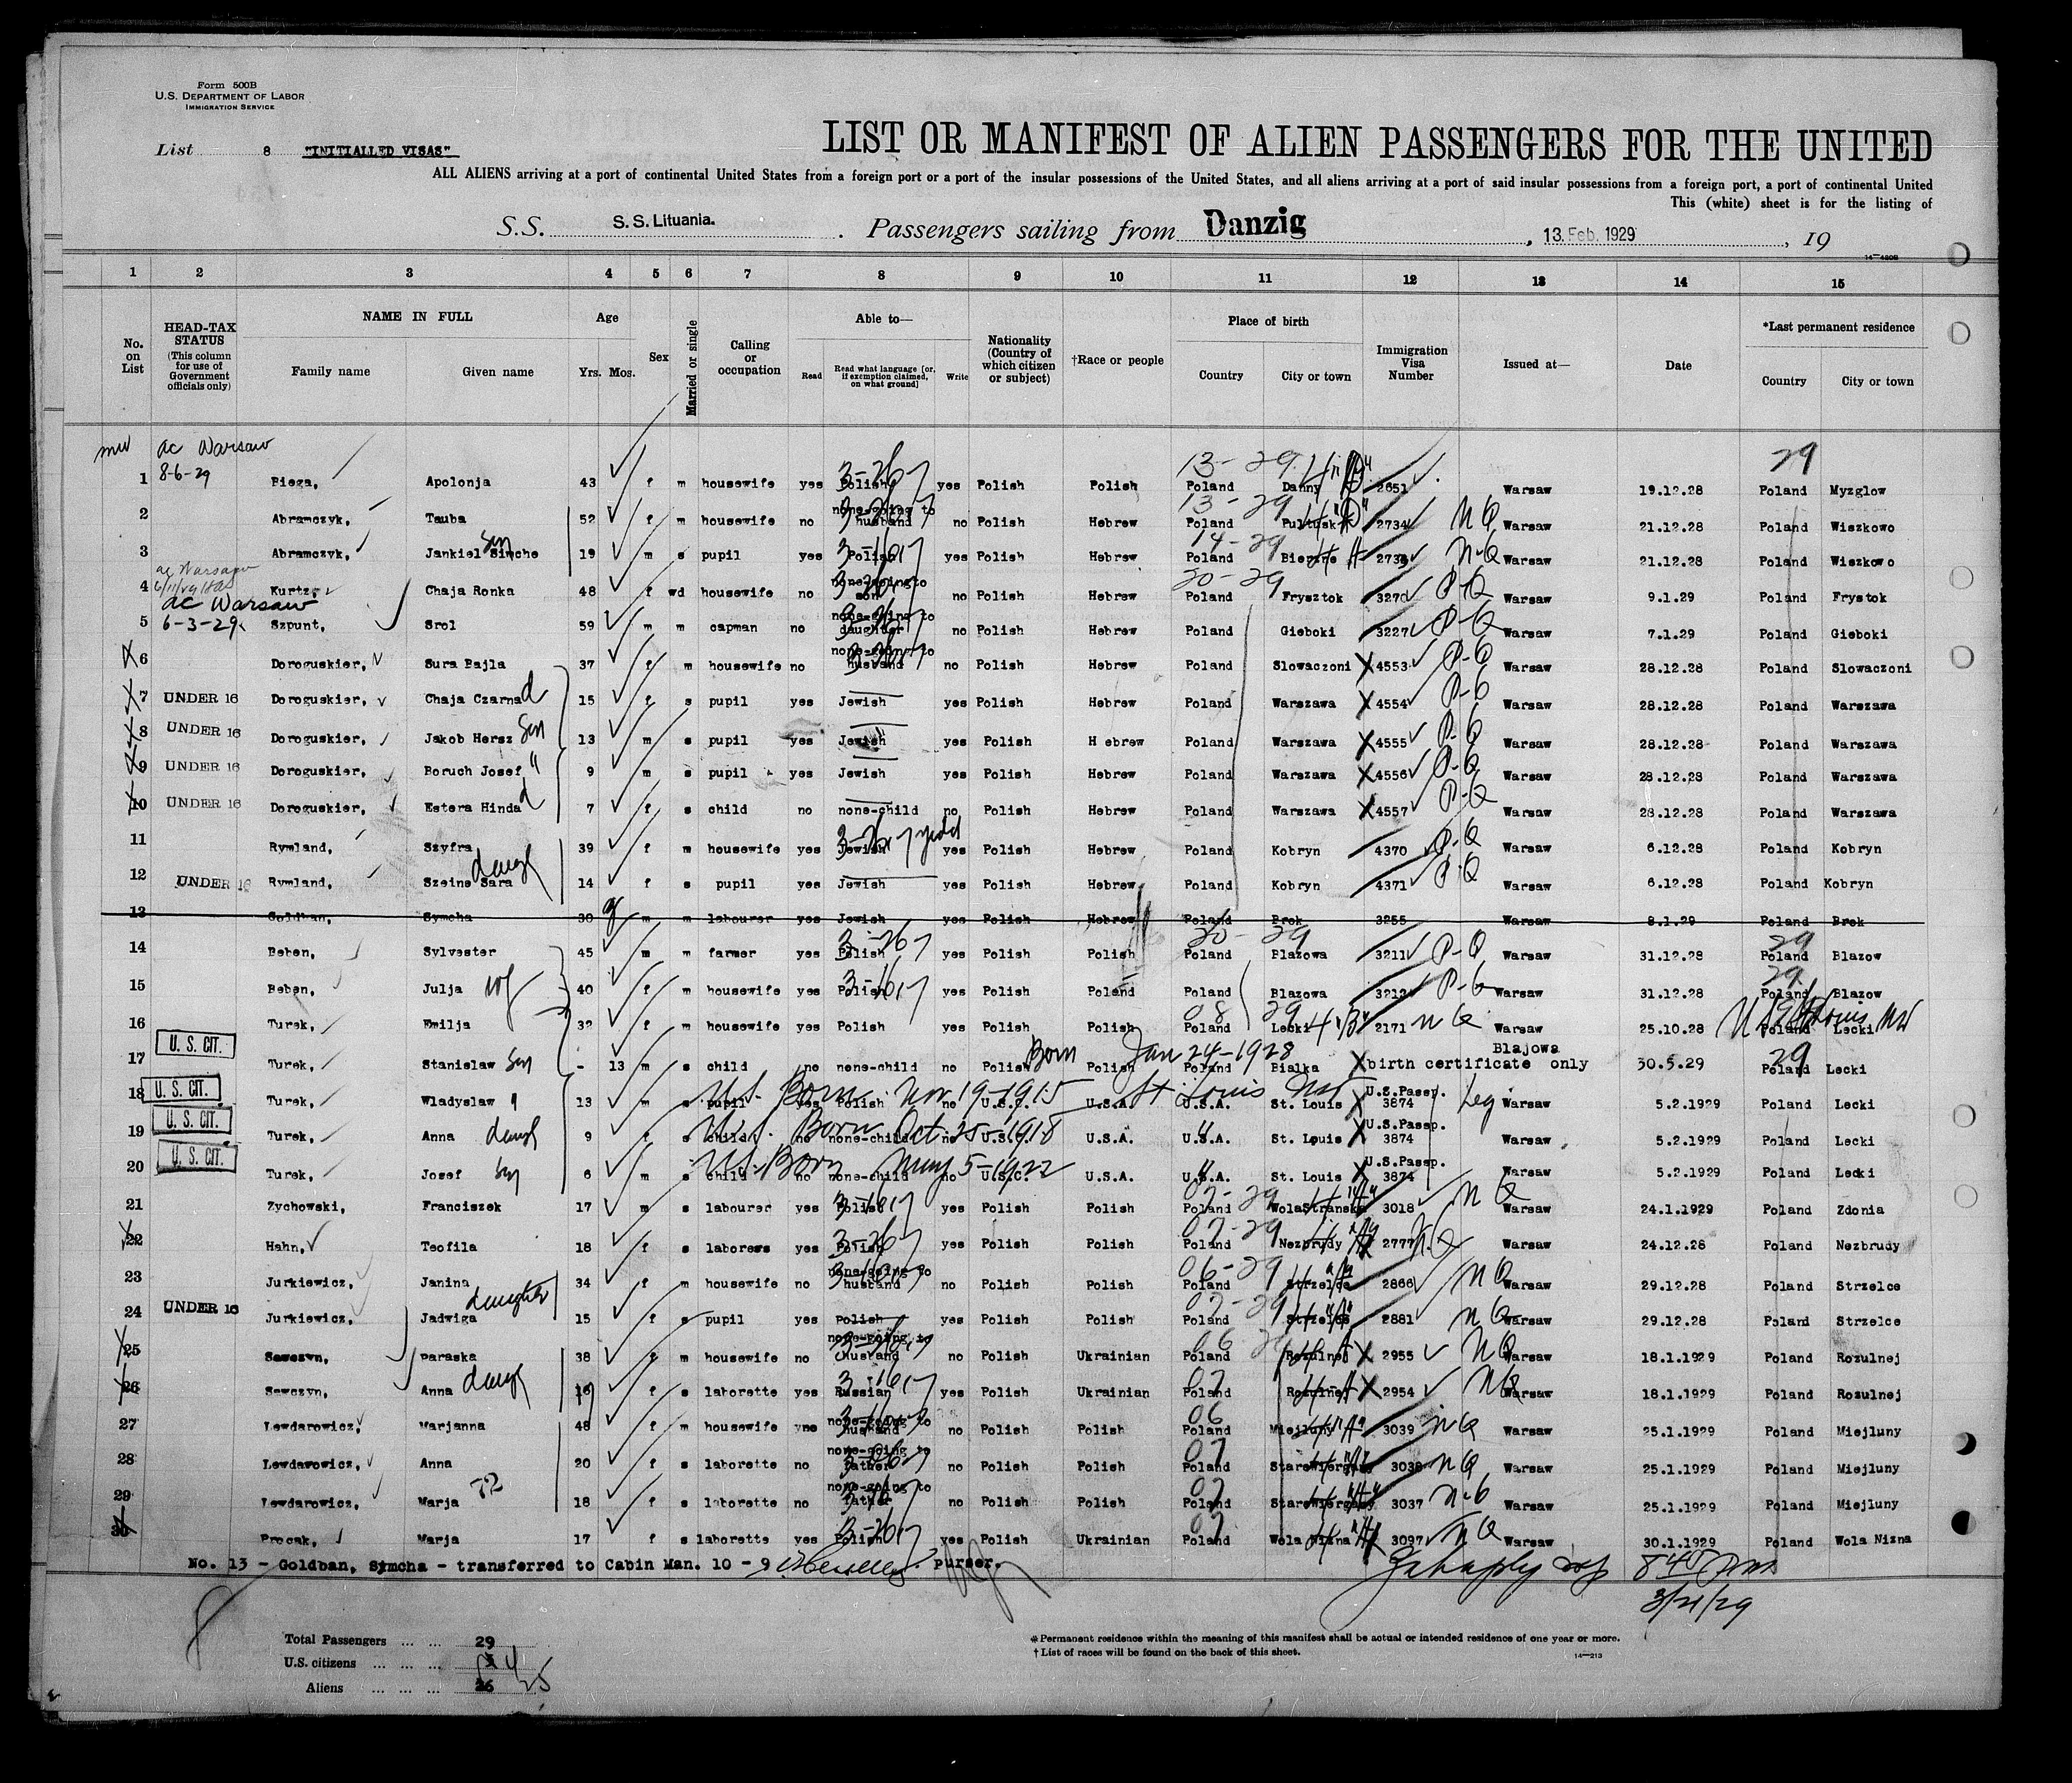 Form 500B
U.S. DEPARTMENT OF LABOR
IMMIGRATION SERVICE
List 8 "INITIALLED VISAS"
LIST OR MANIFEST OF ALIEN PASSENGERS FOR THE UNITED
ALL ALIENS arriving at a port of continental United States from a foreign port or a port of the insular possessions of the United States, and all aliens arriving at a port of said insular possessions from a foreign port, a port of continental United
This (white) sheet is for the listing of
S.S. S.S. Lituania. Passengers sailing from Danzig, 13. Feb. 1929, 19
14-4208
1 2 3 4 5 6 7 8 9 10 11 12 13 14 15
No. on List
HEAD-TAX STATUS (This column for use of Government officials only)
NAME IN FULL Family name Given name
Age Yrs. Mos.
Sex
Married or single
Calling or occupation
Able to— Read Read what language [or, if exemption claimed, on what ground] Write
Nationality (Country of which citizen or subject)
†Race or people
Place of birth Country City or town
Immigration Visa Number
Issued at—
Date
*Last permanent residence Country City or town
mw ac Warsaw 13-29 29
1 8-6-29 Biega, Apolonja 43 f m housewife yes Polish 3-26 yes Polish Polish Poland Danny 2651 Warsaw 19.12.28 Poland Myzglow
2 Abramczyk, Tauba 52 f m housewife no none-going to husband no Polish Hebrew 13-29 Poland Pultusk 2734 NQ Warsaw 21.12.28 Poland Wiszkowo
3 Abramczyk, Jankiel Simche Son 19 m s pupil yes Polish yes Polish Hebrew 14-29 Poland 273 NQ Warsaw 21.12.28 Poland Wiszkowo
ac Warsaw
4 Kurtz, Chaja Ronka 48 f wd housewife no none-going to son no Polish Hebrew 20-29 Poland Frysztok 3270 P-Q Warsaw 9.1.29 Poland Frystok
ac Warsaw
5 6-3-29 Szpunt, Srol 59 m m capman no none-going to daughter no Polish Hebrew Poland Gieboki 3227 P-Q Warsaw 7.1.29 Poland Gieboki
6 Doroguskier, Sura Bajla 37 f m housewife no none-going to husband no Polish Hebrew Poland Slowaczoni X 4553 P-Q Warsaw 28.12.28 Poland Slowaczoni
7 UNDER 16 Doroguskier, Chaja Czarna d 15 f s pupil yes Jewish yes Polish Hebrew Poland Warszawa X 4554 P-Q Warsaw 28.12.28 Poland Warszawa
8 UNDER 16 Doroguskier, Jakob Hersz Son 13 m s pupil yes Jewish yes Polish H ebrew Poland Warszawa X 4555 P-Q Warsaw 28.12.28 Poland Warszawa
9 UNDER 16 Doroguskier, Boruch Josef " 9 m s pupil yes Jewish yes Polish Hebrew Poland Warszawa X 4556 P-Q Warsaw 28.12.28 Poland Warszawa
10 UNDER 16 Doroguskier, Estera Hinda d 7 f s child no none-child no Polish Hebrew Poland Warszawa X 4557 P-Q Warsaw 28.12.28 Poland Warszawa
11 Rymland, Szyfra 39 f m housewife yes Jewish yes Polish Hebrew Poland Kobryn 4370 P-Q Warsaw 6.12.28 Poland Kobryn
12 UNDER 16 Rymland, Szeine Sara daugt 14 f s pupil yes Jewish yes Polish Hebrew Poland Kobryn 4371 P-Q Warsaw 6.12.28 Poland Kobryn
13 Goldban, Symcha 30 m m labourer yes Jewish yes Polish Hebrew Poland Brok 3255 Warsaw 8.1.29 Poland Brok
14 Beben, Sylvester 45 m m farmer yes Polish 3-26 yes Polish Polish 20-29 Poland Blazowa 3211 P-Q Warsaw 31.12.28 29 Poland Blazow
15 Beben, Julja wf 40 f m housewife yes Polish yes Polish Poland Poland Blazowa 3212 P-Q Warsaw 31.12.28 29 Poland Blazow
16 Turek, Emilja 32 f m housewife yes Polish yes Polish Polish 08 29 Poland Lecki 2171 NQ Warsaw 25.10.28 Poland Lecki
17 U. S. CIT. Turek, Stanislaw Son - 13 m s child no none-child no Polish Born Jan 24-1928 Polish Poland Bialka X birth certificate only Blajowa 30.5.29 29 Poland Lecki
18 U. S. CIT. Turek, Wladyslaw " 13 m s pupil yes Polish no U.S.C. U.S. Born Nov 19-1915 St Louis Mo U.S.A. U.S.A. St. Louis X U.S.Passp. 3874 Warsaw 5.2.1929 Poland Lecki
19 U. S. CIT. Turek, Anna daugt 9 f s child no none-child no U.S.C. U.S. Born Oct 25-1918 U.S.A. U.S.A. St. Louis X U.S.Passp. 3874 Warsaw 5.2.1929 Poland Lecki
20 U. S. CIT. Turek, Josef Son 6 m s child no none-child no U.S.C. U.S. Born May 5-1922 U.S.A. U.S.A. St. Louis X U.S.Passp. 3874 Warsaw 5.2.1929 Poland Lecki
21 Zychowski, Franciszek 17 m s labourer yes Polish yes Polish Polish 07-29 Poland 3018 NQ Warsaw 24.1.1929 Poland Zdonia
22 Hahn, Teofila 18 f s laboress yes Polish 3-26 yes Polish Polish 07-29 Poland Nezbrudy 2777 NQ Warsaw 24.12.28 Poland Nezbrudy
23 Jurkiewicz, Janina 34 f m housewife no none-going to husband no Polish Polish 06-29 Poland Strzelce 2866 NQ Warsaw 29.12.28 Poland Strzelce
24 UNDER 16 Jurkiewicz, Jadwiga daughter 15 f s pupil yes Polish yes Polish Polish 07-29 Poland Strzelce 2881 NQ Warsaw 29.12.28 Poland Strzelce
25 Sawczyn, paraska 38 f m housewife no none-going to husband no Polish Ukrainian 06 29 Poland Rozulnej X 2955 NQ Warsaw 18.1.1929 Poland Rozulnej
26 Sawczyn, Anna daugt f s laborette yes Russian yes Polish Ukrainian 07 Poland Rozulnej X 2954 NQ Warsaw 18.1.1929 Poland Rozulnej
27 Lewdarowicz, Marjanna 48 f m housewife none-going to husband no Polish Polish 06 Poland Miejluny 3039 NQ Warsaw 25.1.1929 Poland Miejluny
28 Lewdarowicz, Anna 20 f s laborette no none-going to father no Polish Polish 07 Poland 3038 NQ Warsaw 25.1.1929 Poland Miejluny
29 Lewdarowicz, Marja 18 f s laborette no none-going to father no Polish Polish 07 Poland 3037 NQ Warsaw 25.1.1929 Poland Miejluny
30 Procak, Marja 17 f s laborette yes Polish yes Polish Ukrainian 07 Poland Wola Nizna 3097 NQ Warsaw 30.1.1929 Poland Wola Nizna
No. 13 - Goldban, Symcha - transferred to Cabin Man. 10 - 9 purser.
8 40 PM
3/21/29
Total Passengers ... ... 29
U.S. citizens ... ... ... 3 4
Aliens ... ... ... 26 25
* Permanent residence within the meaning of this manifest shall be actual or intended residence of one year or more.
† List of races will be found on the back of this sheet.
14-213